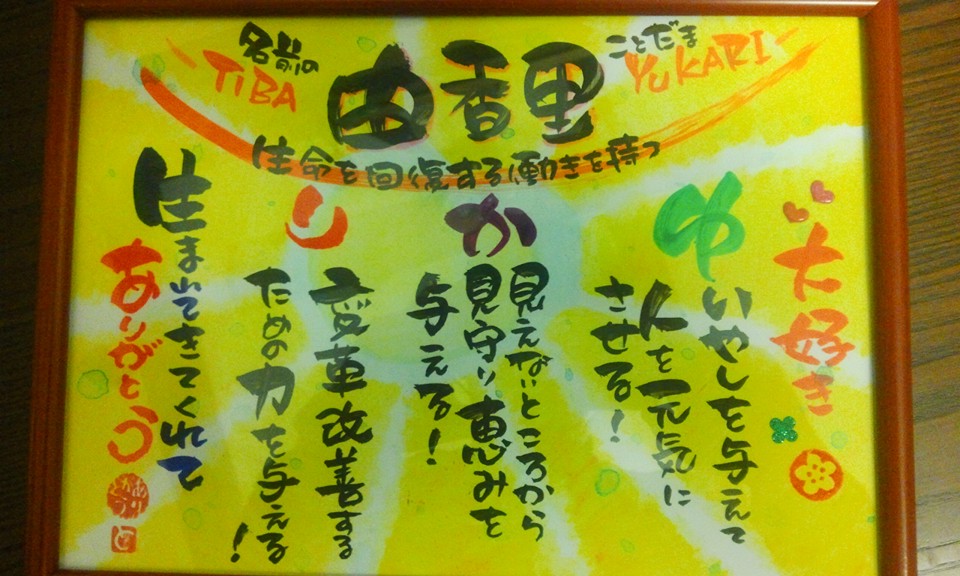 名前の
ことだま
TIBA
由香里
YUKARI
生命を回復する働きを持つ
大好き
ゆ
いやしを与えて
人を元気に
させる!
か
見えないところから
見守り恵みを
与える!
り
変革改善する
ための力を与える!
生まれてきてくれて
ありがとう